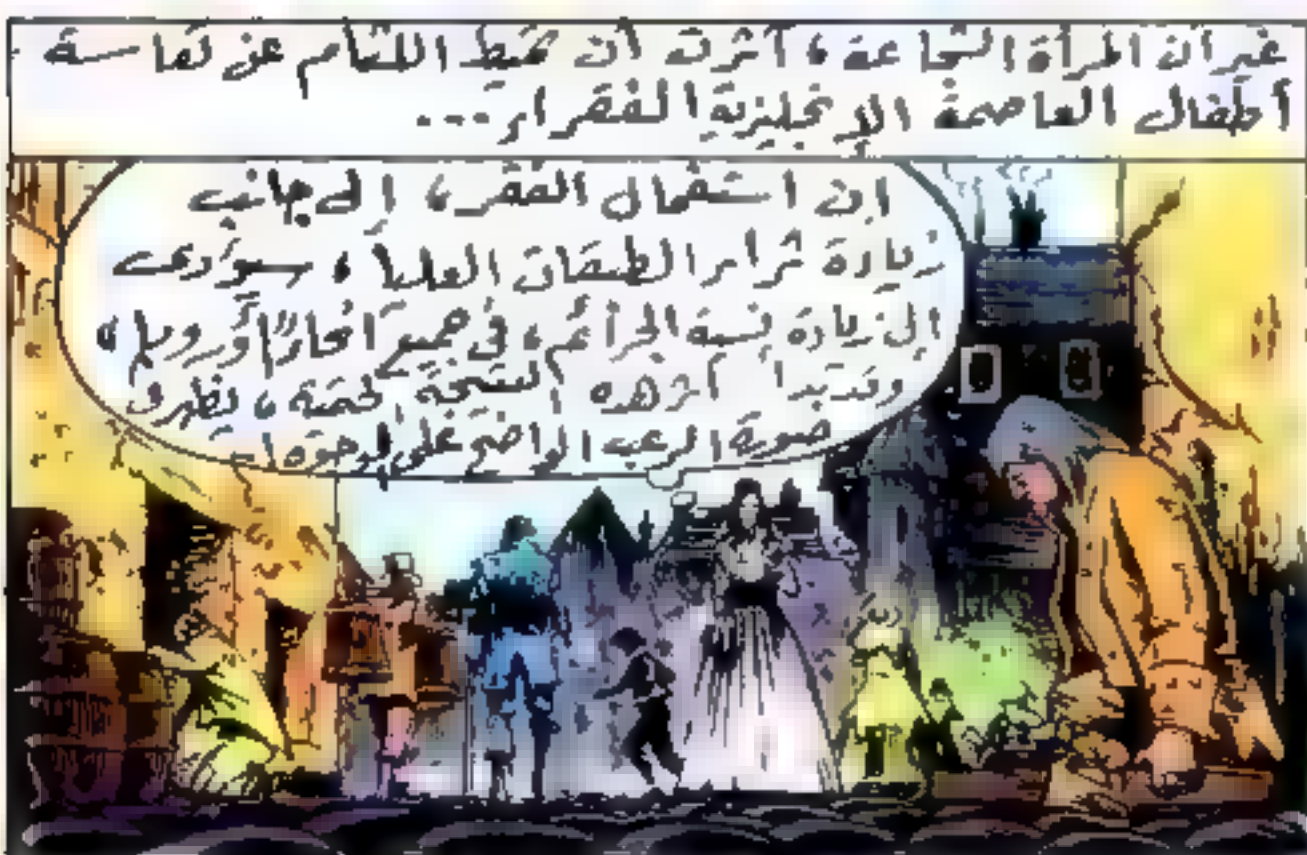 غير أن المرأة الشجاعة، آثرت أن تميط اللثام عن تعاسة
أطفال العاصمة الإنجليزية الفقراء...
إن استفحال الفقر، إلى جانب
زيادة ثراء الطبقات العليا، سيؤدى
إلى زيادة نسبة الجرائم، فى جميع أنحاء أوروبا،
هذه النتيجة الحتمية، يظهر فى
صورة الرعب الواضح على الوجوه!